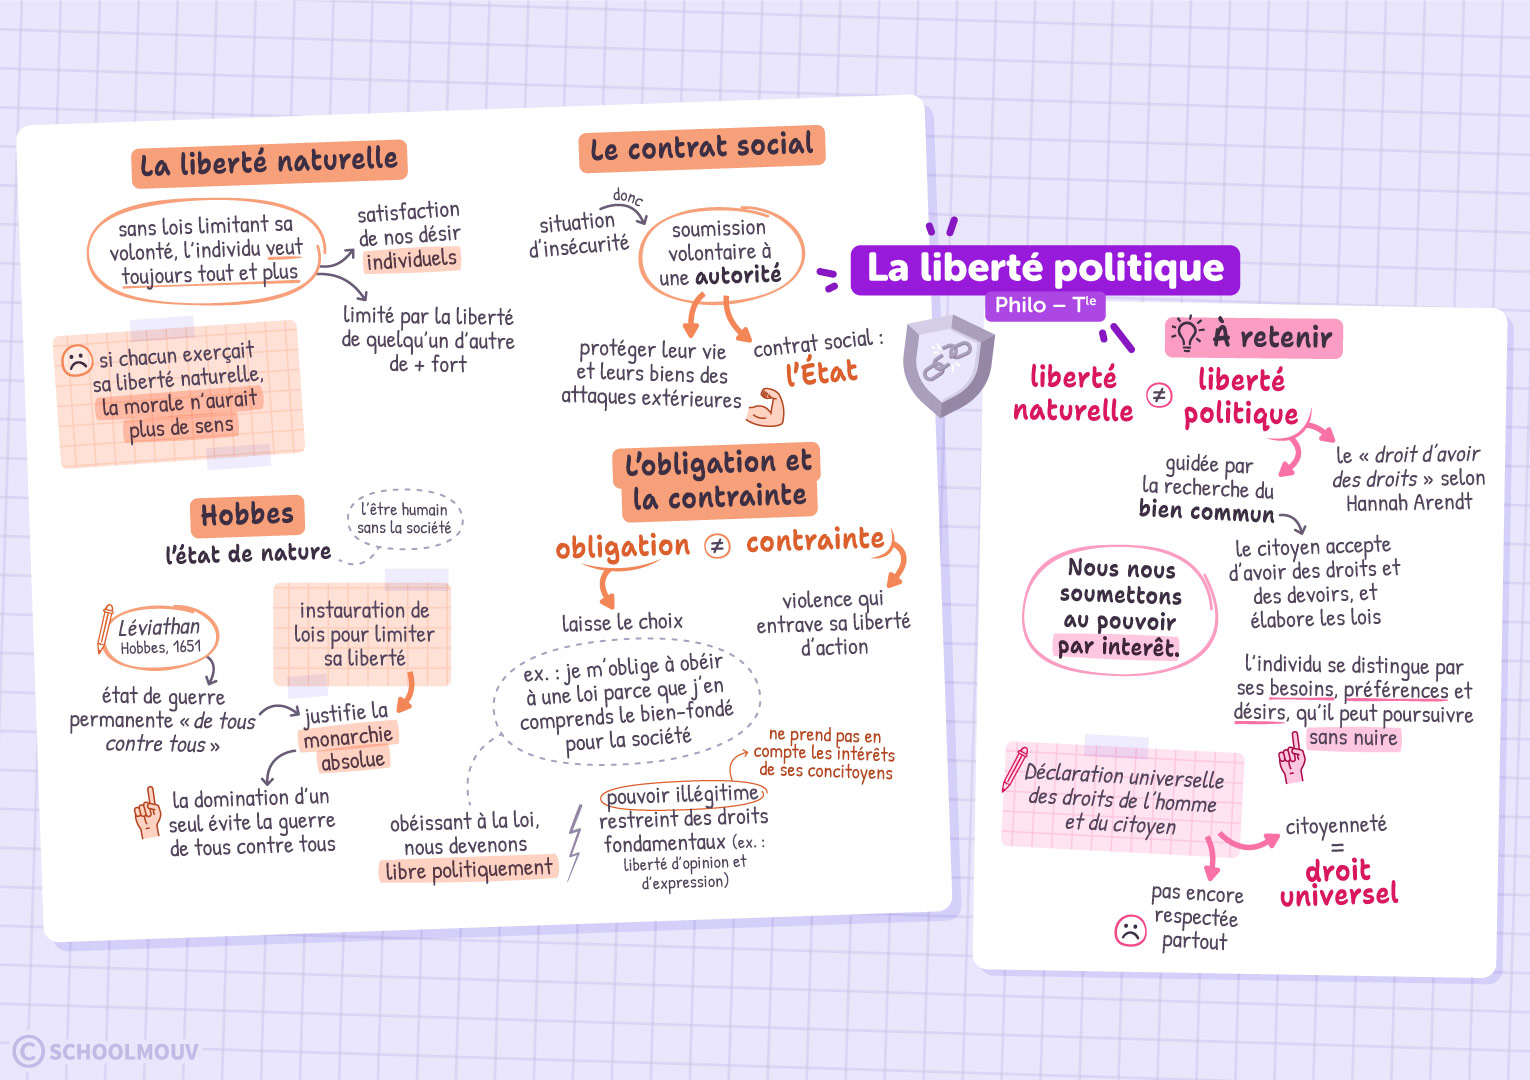 La liberté politique
Philo – Tle
La liberté naturelle
sans lois limitant sa
volonté, l'individu veut
toujours tout et plus
satisfaction
de nos désir
individuels
limité par la liberté
de quelqu'un d'autre
de + fort
si chacun exerçait
sa liberté naturelle,
la morale n'aurait
plus de sens
Le contrat social
situation
d'insécurité
donc
soumission
volontaire à
une autorité
protéger leur vie
et leurs biens des
attaques extérieures
contrat social :
l'État
Hobbes
l'état de nature
l'être humain
sans la société
Léviathan
Hobbes, 1651
état de guerre
permanente « de tous
contre tous »
instauration de
lois pour limiter
sa liberté
justifie la
monarchie
absolue
la domination d'un
seul évite la guerre
de tous contre tous
L'obligation et
la contrainte
obligation ≠ contrainte
laisse le choix
violence qui
entrave sa liberté
d'action
ex. : je m'oblige à obéir
à une loi parce que j'en
comprends le bien-fondé
pour la société
obéissant à la loi,
nous devenons
libre politiquement
ne prend pas en
compte les intérêts
de ses concitoyens
pouvoir illégitime
restreint des droits
fondamentaux (ex. :
liberté d'opinion et
d'expression)
À retenir
liberté
naturelle
≠
liberté
politique
guidée par
la recherche du
bien commun
le « droit d'avoir
des droits » selon
Hannah Arendt
le citoyen accepte
d'avoir des droits et
des devoirs, et
élabore les lois
Nous nous
soumettons
au pouvoir
par interêt.
l'individu se distingue par
ses besoins, préférences et
désirs, qu'il peut poursuivre
sans nuire
Déclaration universelle
des droits de l'homme
et du citoyen
citoyenneté
=
droit
universel
pas encore
respectée
partout
© SCHOOLMOUV